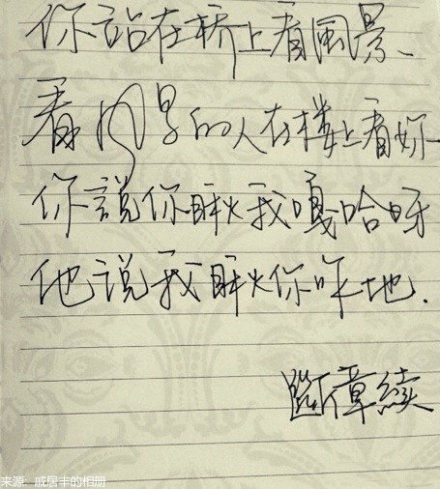 你站在桥上看風景、
看风景的人在楼上看妳
你説你瞅我嘎哈呀
他说我瞅你咋地.
斷章續
来源:戚居丰的相册